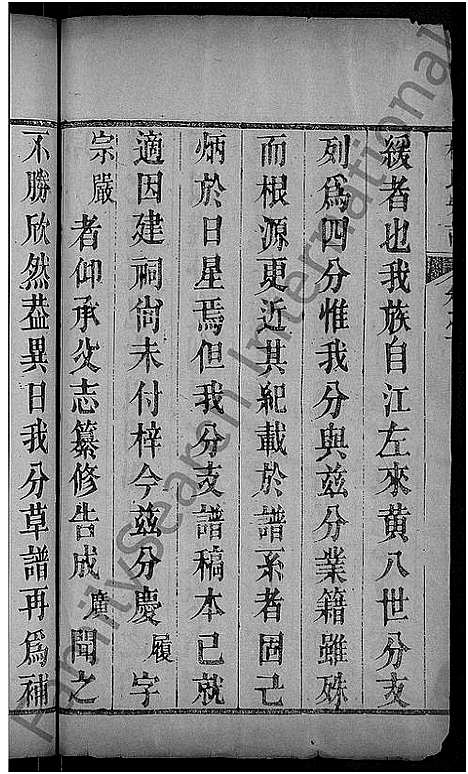 緩者也我族自江左來黃八世分支
列爲四分惟我分與兹分業籍雖殊
而根源更近其紀載於譜系者固已
炳於日星焉但我分支譜稿本已就
適因建祠尙未付梓今兹分慶履字
宗嚴者仰承父志纂修告成廣聞之
不勝欣然葢異日我分草譜再爲補
FamilySearch International